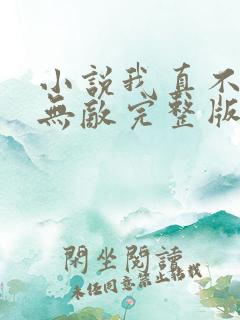 小説我真不
無敵完整版
閑坐閱讀
未任同意禁止轉載